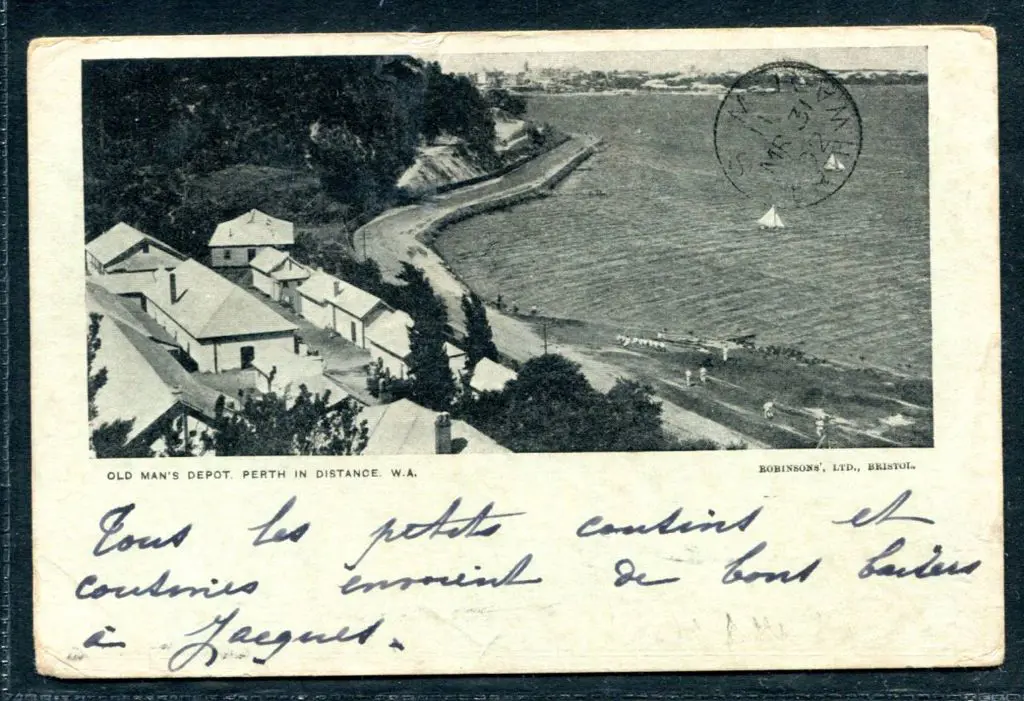 OLD MAN'S DEPOT. PERTH IN DISTANCE. W.A.
ROBINSONS', LTD., BRISTOL.
Tous les petits cousins et
cousines envoient de bons baisers
à Jacques.